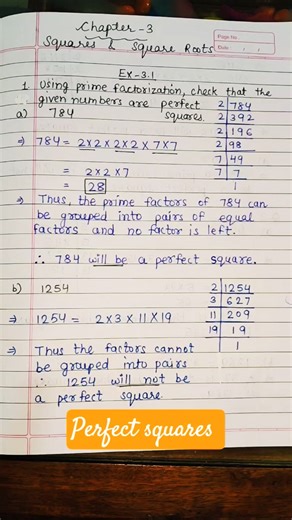 Chapter-3
Page No.
Date
Squares & Square Roots
Ex-3.1
1. Using prime factorization, check that the
given numbers are perfect squares.
a) 784
2 | 784
2 | 392
2 | 196
2 | 98
7 | 49
7 | 7
1
⇒ 784 = 2×2×2×2×7×7
= 2×2×7
= 28
⇒ Thus, the prime factors of 784 can
be grouped into pairs of equal
factors and no factor is left.
∴ 784 will be a perfect square.
b) 1254
2 | 1254
3 | 627
11 | 209
19 | 19
1
⇒ 1254 = 2×3×11×19
⇒ Thus the factors cannot
be grouped into pairs
∴ 1254 will not be
a perfect square.
Perfect squares